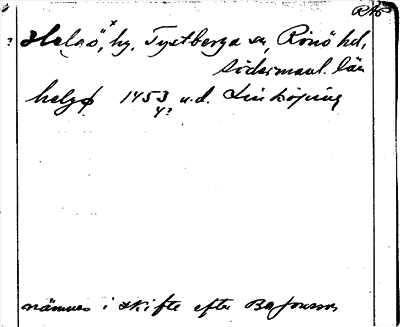 RAÖ
? Helgö,ˣ hg. Tystberga sn, Rönö hd,
Södermanl. län
helgø 1453 u.d. Linköping
4?
nämnes i skifte efter Bo Jonsson